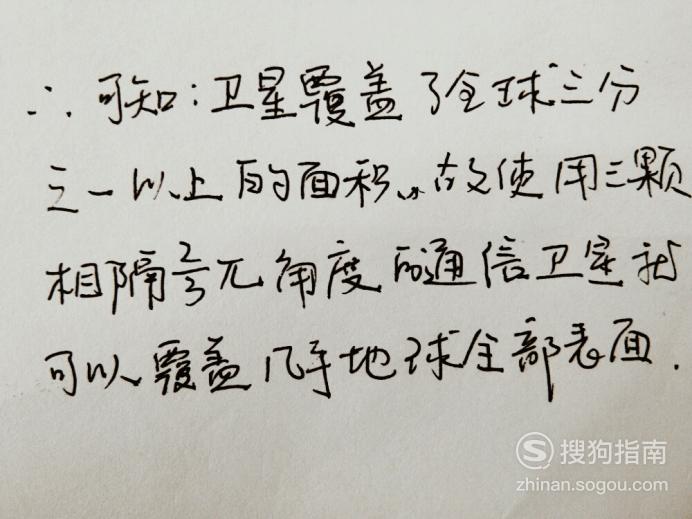 ∴ 可知：卫星覆盖了全球三分
之一以上的面积.故使用三颗
相隔2/3π角度的通信卫星就
可以覆盖几乎地球全部表面.
搜狗指南
zhinan.sogou.com